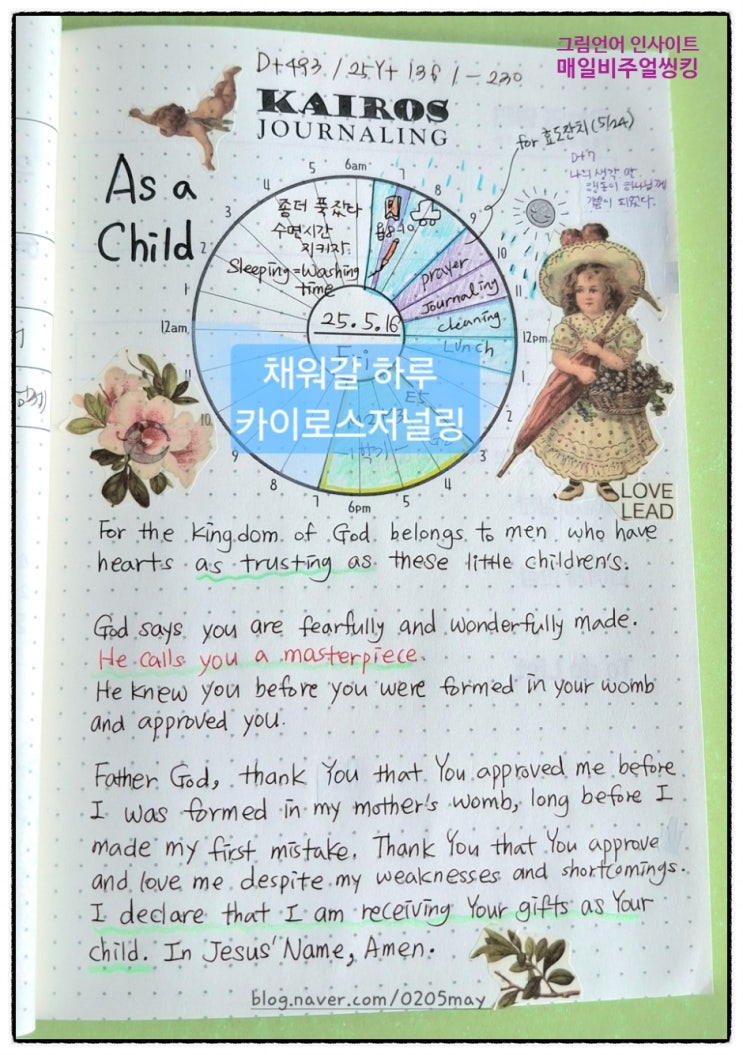 그림언어 인사이트
매일비주얼씽킹
D+493 / 25Y+ 136 / - 230
KAIROS
JOURNALING
for 효도잔치 (5/24)
D+7
나의 생각 말
행동이 하나님께
기쁨이 되었다.
As a
Child
6am
7
8
9
10
11
12pm
2
3
4
5
6pm
7
8
9
10
11
12am
1
2
3
4
5
좀더 푹 잤다
수면시간
지키자.
Sleeping = Washing
time
prayer
Journaling
cleaning
Lunch
25. 5. 16
Fri
채워갈 하루
카이로스저널링
E5
LOVE
LEAD
For the kingdom of God belongs to men who have
hearts as trusting as these little children's.
God says you are fearfully and wonderfully made.
He calls you a masterpiece.
He knew you before you were formed in your womb
and approved you.
Father God, thank You that You approved me before
I was formed in my mother's womb, long before I
made my first mistake. Thank You that You approve
and love me despite my weaknesses and shortcomings.
I declare that I am receiving Your gifts as Your
child. In Jesus' Name, Amen.
blog.naver.com/0205may